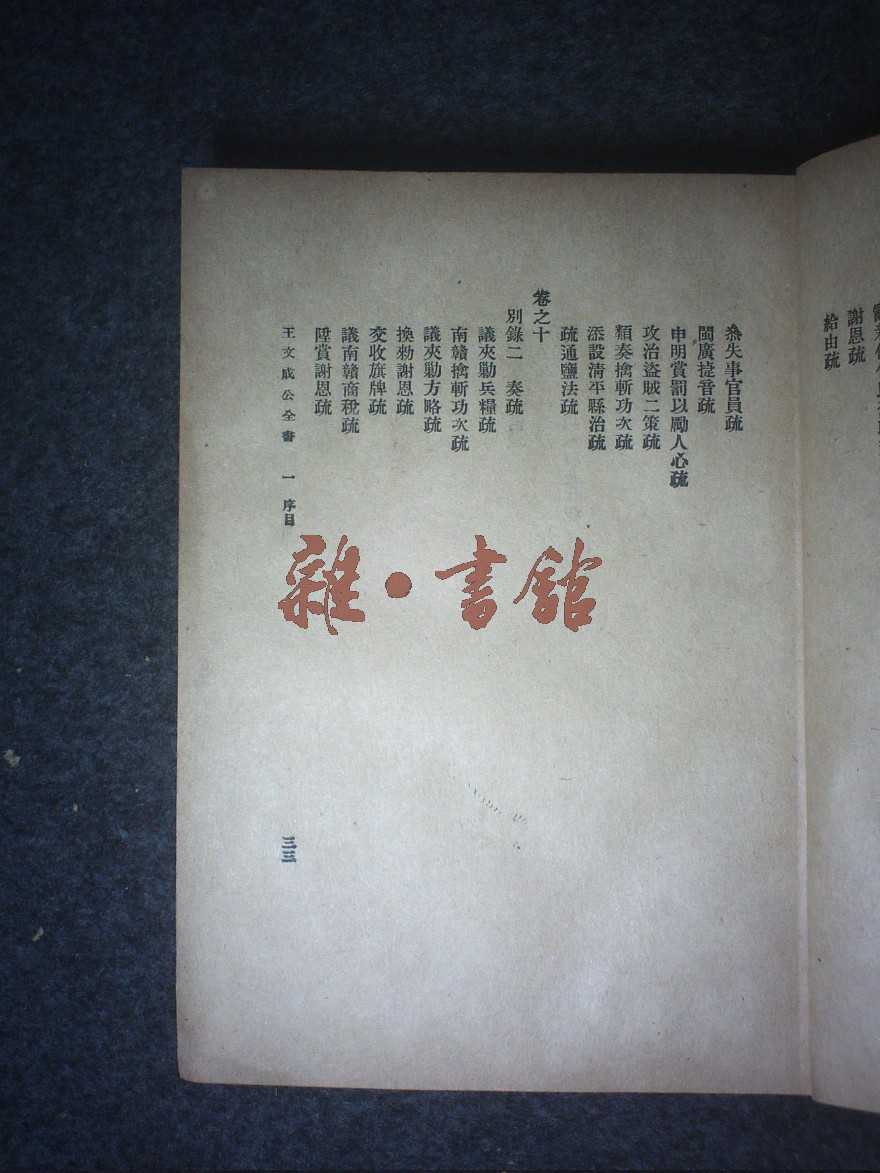 謝恩疏
給由疏
叅失事官員疏
閩廣捷音疏
申明賞罰以勵人心疏
攻治盜賊二策疏
類奏擒斬功次疏
添設清平縣治疏
疏通鹽法疏
卷之十
別錄二　奏疏
議夾勦兵糧疏
南贛擒斬功次疏
議夾勦方略疏
換勑謝恩疏
交收旗牌疏
議南贛商稅疏
陞賞謝恩疏
王文成公全書　一　序目
三三
雜・書館